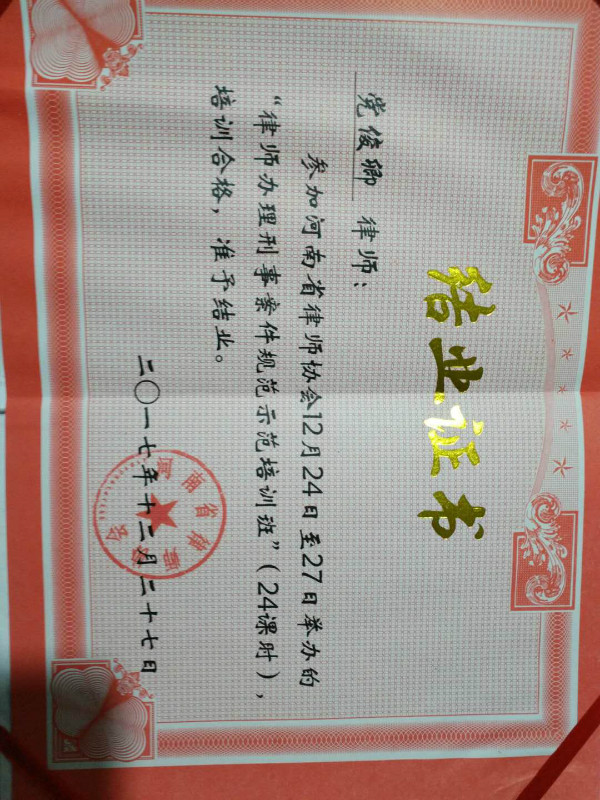 结业证书
党俊卿 律师：
参加河南省律师协会12月24日至27日举办的
“律师办理刑事案件规范示范培训班”（24课时），
培训合格，准予结业。
二〇一七年十二月二十七日
河南省律师协会